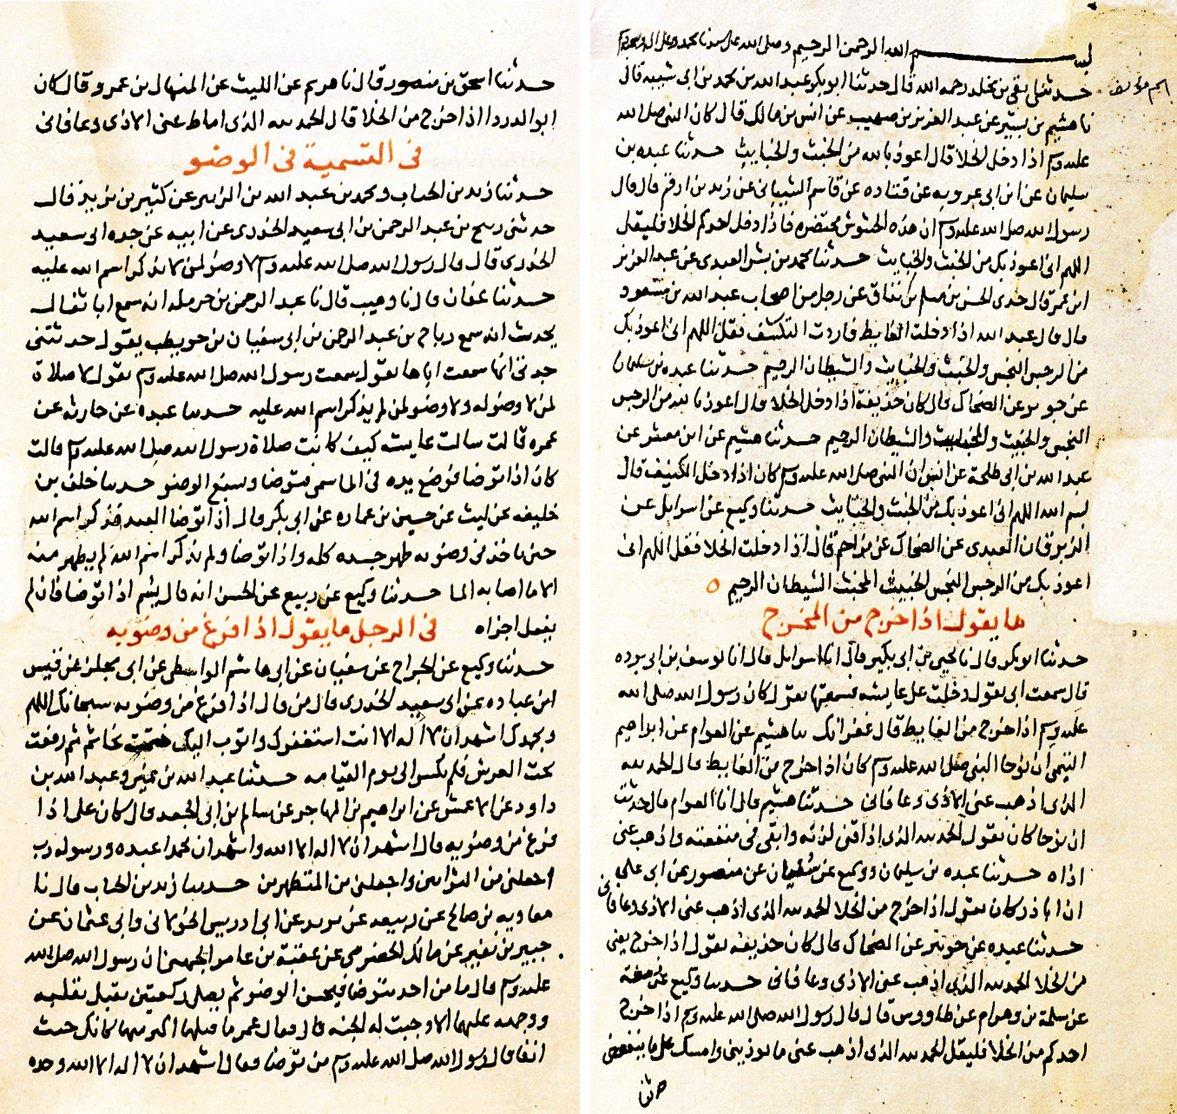 بسم الله الرحمن الرحيم وصلى الله على سيدنا محمد وعلى اله وصحبه
حدثنا بقي بن مخلد رحمه الله قال حدثنا ابو بكر عبد الله بن محمد بن ابى شيبه قال
نا هشيم بن بشير عن عبد العزيز بن صهيب عن انس بن مالك قال كان النبي صلى الله
عليه وسلم اذا دخل الخلا قال اعوذ بالله من الخبث والخبايث حدثنا عبده بن
سليمان عن ابن ابى عروبه عن قتاده عن قاسم الشيبانى عن زيد بن ارقم قال قال
رسول الله صلى الله عليه وسلم ان هذه الحشوش محتضره فاذا دخل احدكم الخلا فليقل
اللهم انى اعوذ بك من الخبث والخبايث حدثنا محمد بن بشر العبدى عن عبد العزيز
ابن عمر قال حدثنى الحسن بن مسلم بن يناق عن رجل من اصحاب عبد الله بن مسعود
قال قال عبد الله اذا دخلت الغايط فاردت التكشف فقل اللهم انى اعوذ بك
من الرجس النجس والخبث والخبايث والشيطان الرجيم حدثنا عبده بن سليمان
عن جويبر عن الضحاك قال كان حذيفة اذا دخل الخلا قال اعوذ بالله من الرجس
النجس والخبيث والخبايث والشيطان الرجيم حدثنا هشيم عن ابى معشر عن
عبد الله بن ابى طلحة عن انس ان النبى صلى الله عليه وسلم كان اذا دخل الكنيف قال
بسم الله اللهم انى اعوذ بك من الخبث والخبايث حدثنا وكيع عن اسرايل عن
الزبرقان العبدى عن الضحاك بن مزاحم قال اذا دخلت الخلا فقل اللهم انى
اعوذ بك من الرجس النجس الخبيث المخبث الشيطان الرجيم
ما يقول اذا خرج من المخرج
حدثنا ابو بكر قال نا يحيى بن ابى بكير قال انا اسرايل قال انا يوسف بن ابى برده
قال سمعت ابى يقول دخلت على عايشه فسمعتها تقول كان رسول الله صلى الله
عليه وسلم اذا خرج من الغايط قال غفرانك نا هشيم عن العوام عن ابراهيم
التيمى ان نوحا النبى صلى الله عليه وسلم كان اذا خرج من الغايط قال الحمد لله
الذى اذهب عنى الاذى وعافانى حدثنا هشيم قال انا العوام قال حدثت
ان نوحا كان يقول الحمد لله الذى اذاقنى لذته وابقى فى منفعته واذهب عنى
اذاه حدثنا عبده بن سليمان ووكيع عن سفيان عن منصور عن ابى على
ان ابا ذر كان يقول اذا خرج من الخلا الحمد لله الذى اذهب عنى الاذى وعافانى
حدثنا عبده عن جويبر عن الضحاك قال كان حذيفة يقول اذا خرج يعنى
من الخلا الحمد لله الذى اذهب عنى الاذى وعافانى حدثنا وكيع عن زمعة
عن سلمة بن وهرام عن طاووس قال قال رسول الله صلى الله عليه وسلم اذا خرج
احدكم من الخلا فليقل الحمد لله الذى اذهب عنى ما يوذينى وامسك على ما ينفعنى
حدثنا
حدثنا اسحق بن منصور قال نا هريم عن الليث عن المنهال بن عمرو قال كان
ابو الدردا اذا خرج من الخلا قال الحمد لله الذى اماط عنى الاذى وعافانى
فى التسمية فى الوضو
حدثنا زيد بن الحباب ومحمد بن عبد الله بن الزبير عن كثير بن زيد قال
حدثنى ربيح بن عبد الرحمن بن ابى سعيد الخدرى عن ابيه عن جده ابى سعيد
الخدرى قال قال رسول الله صلى الله عليه وسلم لا وضو لمن لا يذكر اسم الله عليه
حدثنا عفان قال نا وهيب قال نا عبد الرحمن بن حرمله انه سمع ابا ثفال
يحدث انه سمع رباح بن عبد الرحمن بن ابى سفيان بن حويطب يقول حدثتنى
جدتى انها سمعت اباها يقول سمعت رسول الله صلى الله عليه وسلم يقول لا صلاة
لمن لا وضو له ولا وضو لمن لم يذكر اسم الله عليه حدثنا عبدة عن حارثه عن
عمره قالت سالت عايشه كيف كانت صلاة رسول الله صلى الله عليه وسلم قالت
كان اذا توضا فوضع يده فى الما سمى فتوضا ويسبغ الوضو حدثنا خلف بن
خليفه عن ليث عن حسين بن عماره عن ابى بكر قال اذا توضا العبد فذكر اسم الله
حين ياخذ فى وضويه طهر جسده كله واذا توضا ولم يذكر اسم الله لم يطهر منه
الا ما اصابه الما حدثنا وكيع عن ربيع عن الحسن انه قال يسم اذا توضا فان لم
يفعل اجزاه فى الرجل ما يقول اذا فرغ من وضويه
حدثنا وكيع عن الجراح عن سفيان عن ابى هاشم الواسطى عن ابى مجلز عن قيس
ابن عباده عن ابى سعيد الخدرى قال من قال اذا فرغ من وضويه سبحانك اللهم
وبحمدك اشهد ان لا اله الا انت استغفرك واتوب اليك ختمت بخاتم ثم رفعت
تحت العرش فلم تكسر الى يوم القيامه حدثنا عبد الله بن نمير وعبد الله بن
داود عن الاعمش عن ابراهيم بن المهاجر عن سالم بن ابى الجعد قال كان على اذا
فرغ من وضويه قال اشهد ان لا اله الا الله واشهد ان محمدا عبده ورسوله رب
اجعلنى من التوابين واجعلنى من المتطهرين حدثنا زيد بن الحباب قال نا
معاويه بن صالح عن ربيعه عن يزيد عن ابى ادريس الخولانى وابى عثمان عن
جبير بن نفير عن مالك الحضرمى عن عقبة بن عامر الجهنى ان رسول الله صلى الله
عليه وسلم قال ما من احد يتوضا فيحسن الوضو ثم يصلى ركعتين يقبل بقلبه
ووجهه عليهما الا وجبت له الجنه قال فقال عمر ما قبلها اكثر منها كانك جيت
انفا قال رسول الله صلى الله عليه وسلم من توضا فقال اشهد ان لا اله الا الله وحده